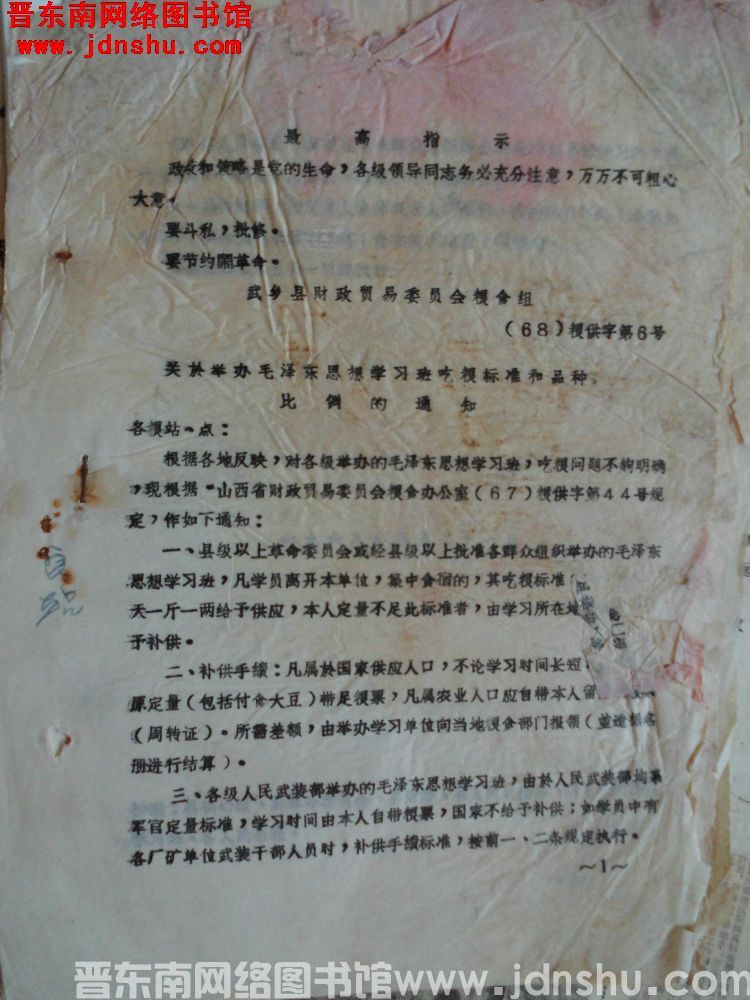 晋东南网络图书馆
www.jdnshu.com
最高指示
政策和策略是党的生命，各级领导同志务必充分注意，万万不可粗心
大意。
要斗私，批修。
要节约闹革命。
武乡县财政贸易委员会粮食组
（68）粮供字第6号
关於举办毛泽东思想学习班吃粮标准和品种、
比例的通知
各粮站、点：
根据各地反映，对各级举办的毛泽东思想学习班，吃粮问题不够明确
，现根据“山西省财政贸易委员会粮食办公室（67）粮供字第44号规
定，作如下通知：
一、县级以上革命委员会或经县级以上批准各群众组织举办的毛泽东
思想学习班，凡学员离开本单位，集中食宿的，其吃粮标准
天一斤一两给予供应，本人定量不足此标准者，由学习所在地
予补供。
二、补供手续：凡属於国家供应人口，不论学习时间长短
原定量（包括付食大豆）带足粮票，凡属农业人口应自带本人留
（周转证）。所需差额，由举办学习单位向当地粮食部门报领（
册进行结算）。
三、各级人民武装部举办的毛泽东思想学习班，由於人民武装部均系
军官定量标准，学习时间由本人自带粮票，国家不给予补供；如学员中有
各厂矿单位武装干部人员时，补供手续标准，按前一、二条规定执行。
～1～
晋东南网络图书馆www.jdnshu.com